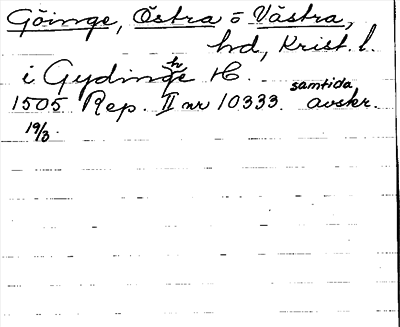 Göinge, Östra o Västra,
hd, Krist. l.
i Gydinghe H.
1505 Rep. II nr 10333. samtida avskr.
19/3.